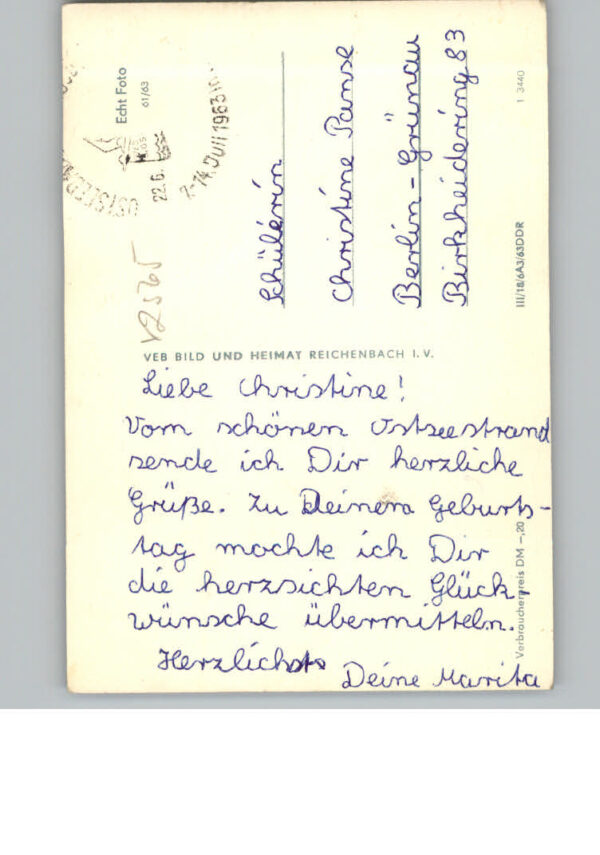 Liebe Christine!
Vom schönen Ostseestrand
sende ich Dir herzliche
Grüße. Zu Deinem Geburts-
tag mochte ich Dir
die herzsichten Glück-
wünsche übermitteln.
Herzlichsts
Deine Marita
VEB BILD UND HEIMAT REICHENBACH I. V.
Schülerin
Christine Panse
Berlin-Grünau
Birkheidering 83
Echt Foto
61/63
22.6.
7.-14. JULI 1963
V2565
III/18/6A3/63DDR
1 3440
Verbraucherpreis DM -,20